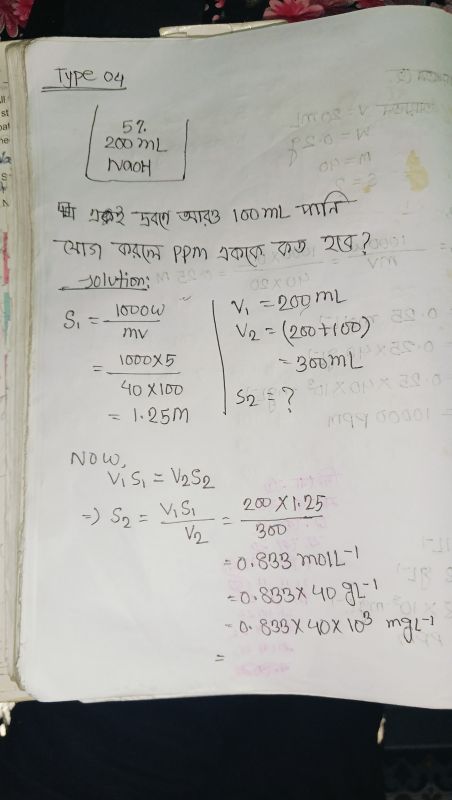 Type 04
5%
200 mL
NaOH
একই দ্রবণে আরও 100mL পানি
যোগ করলে PPM এককে কত হবে?
Solution:
S₁ = 1000w / mv
= 1000×5 / 40×100
= 1.25M
V₁ = 200mL
V₂ = (200+100)
= 300mL
S₂ = ?
NOW,
V₁S₁ = V₂S₂
=> S₂ = V₁S₁ / V₂ = 200×1.25 / 300
= 0.833 molL⁻¹
= 0.833×40 gL⁻¹
= 0.833×40×10³ mgL⁻¹
=